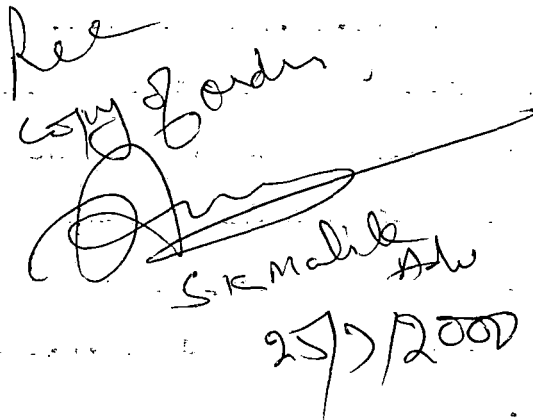 Rec
copy of order,
S.K Malik
Adv
25/7/2000